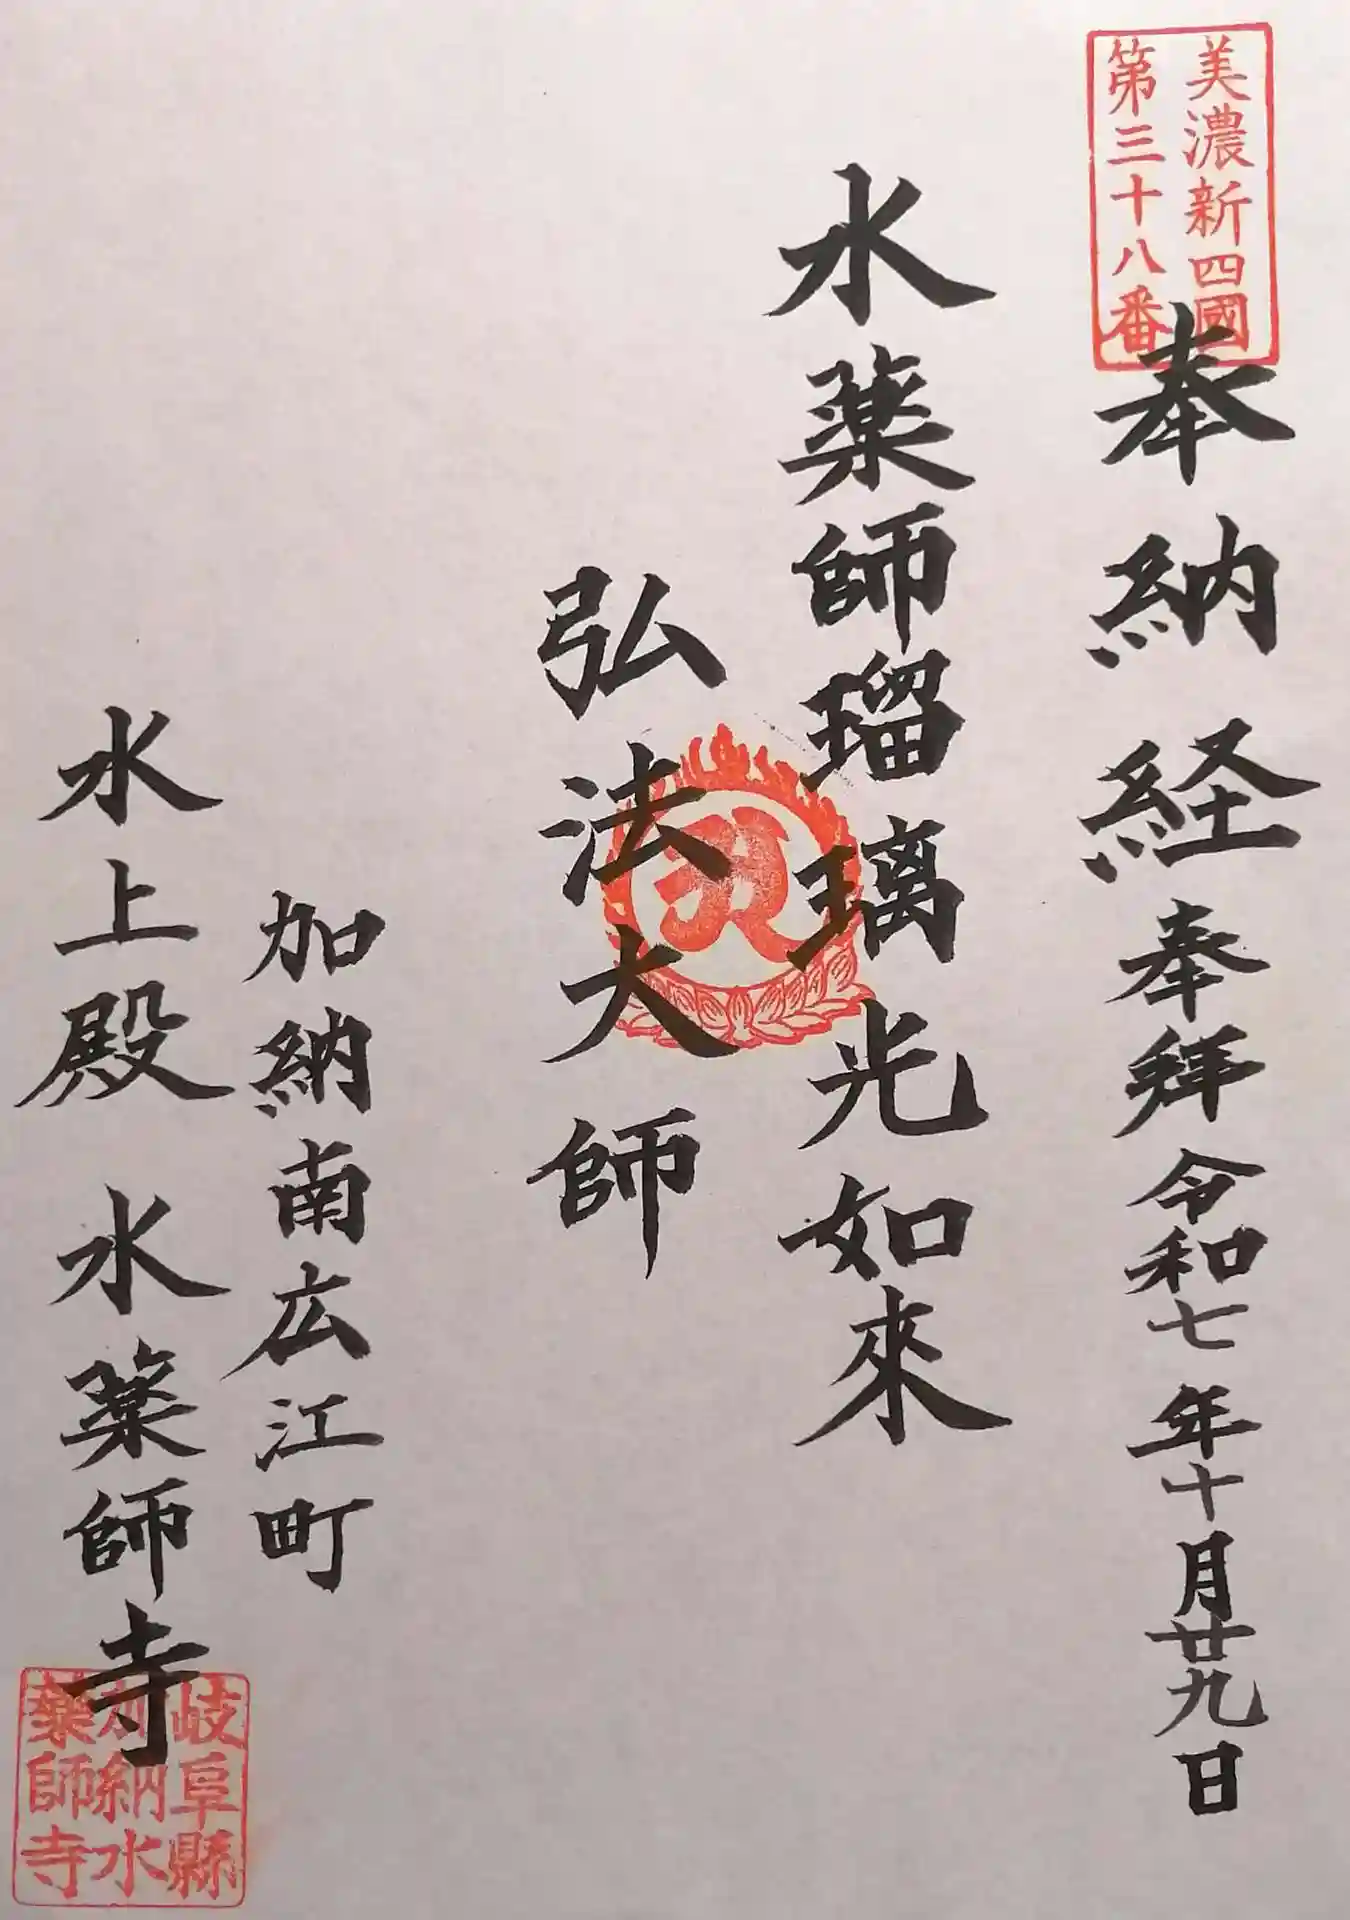 美濃新四國
第三十八番
奉納経 奉拜 令和七年十月廿九日
水薬師瑠璃光如來
弘法大師
加納南広江町
水上殿 水薬師寺
岐阜縣
加納水
藥師寺